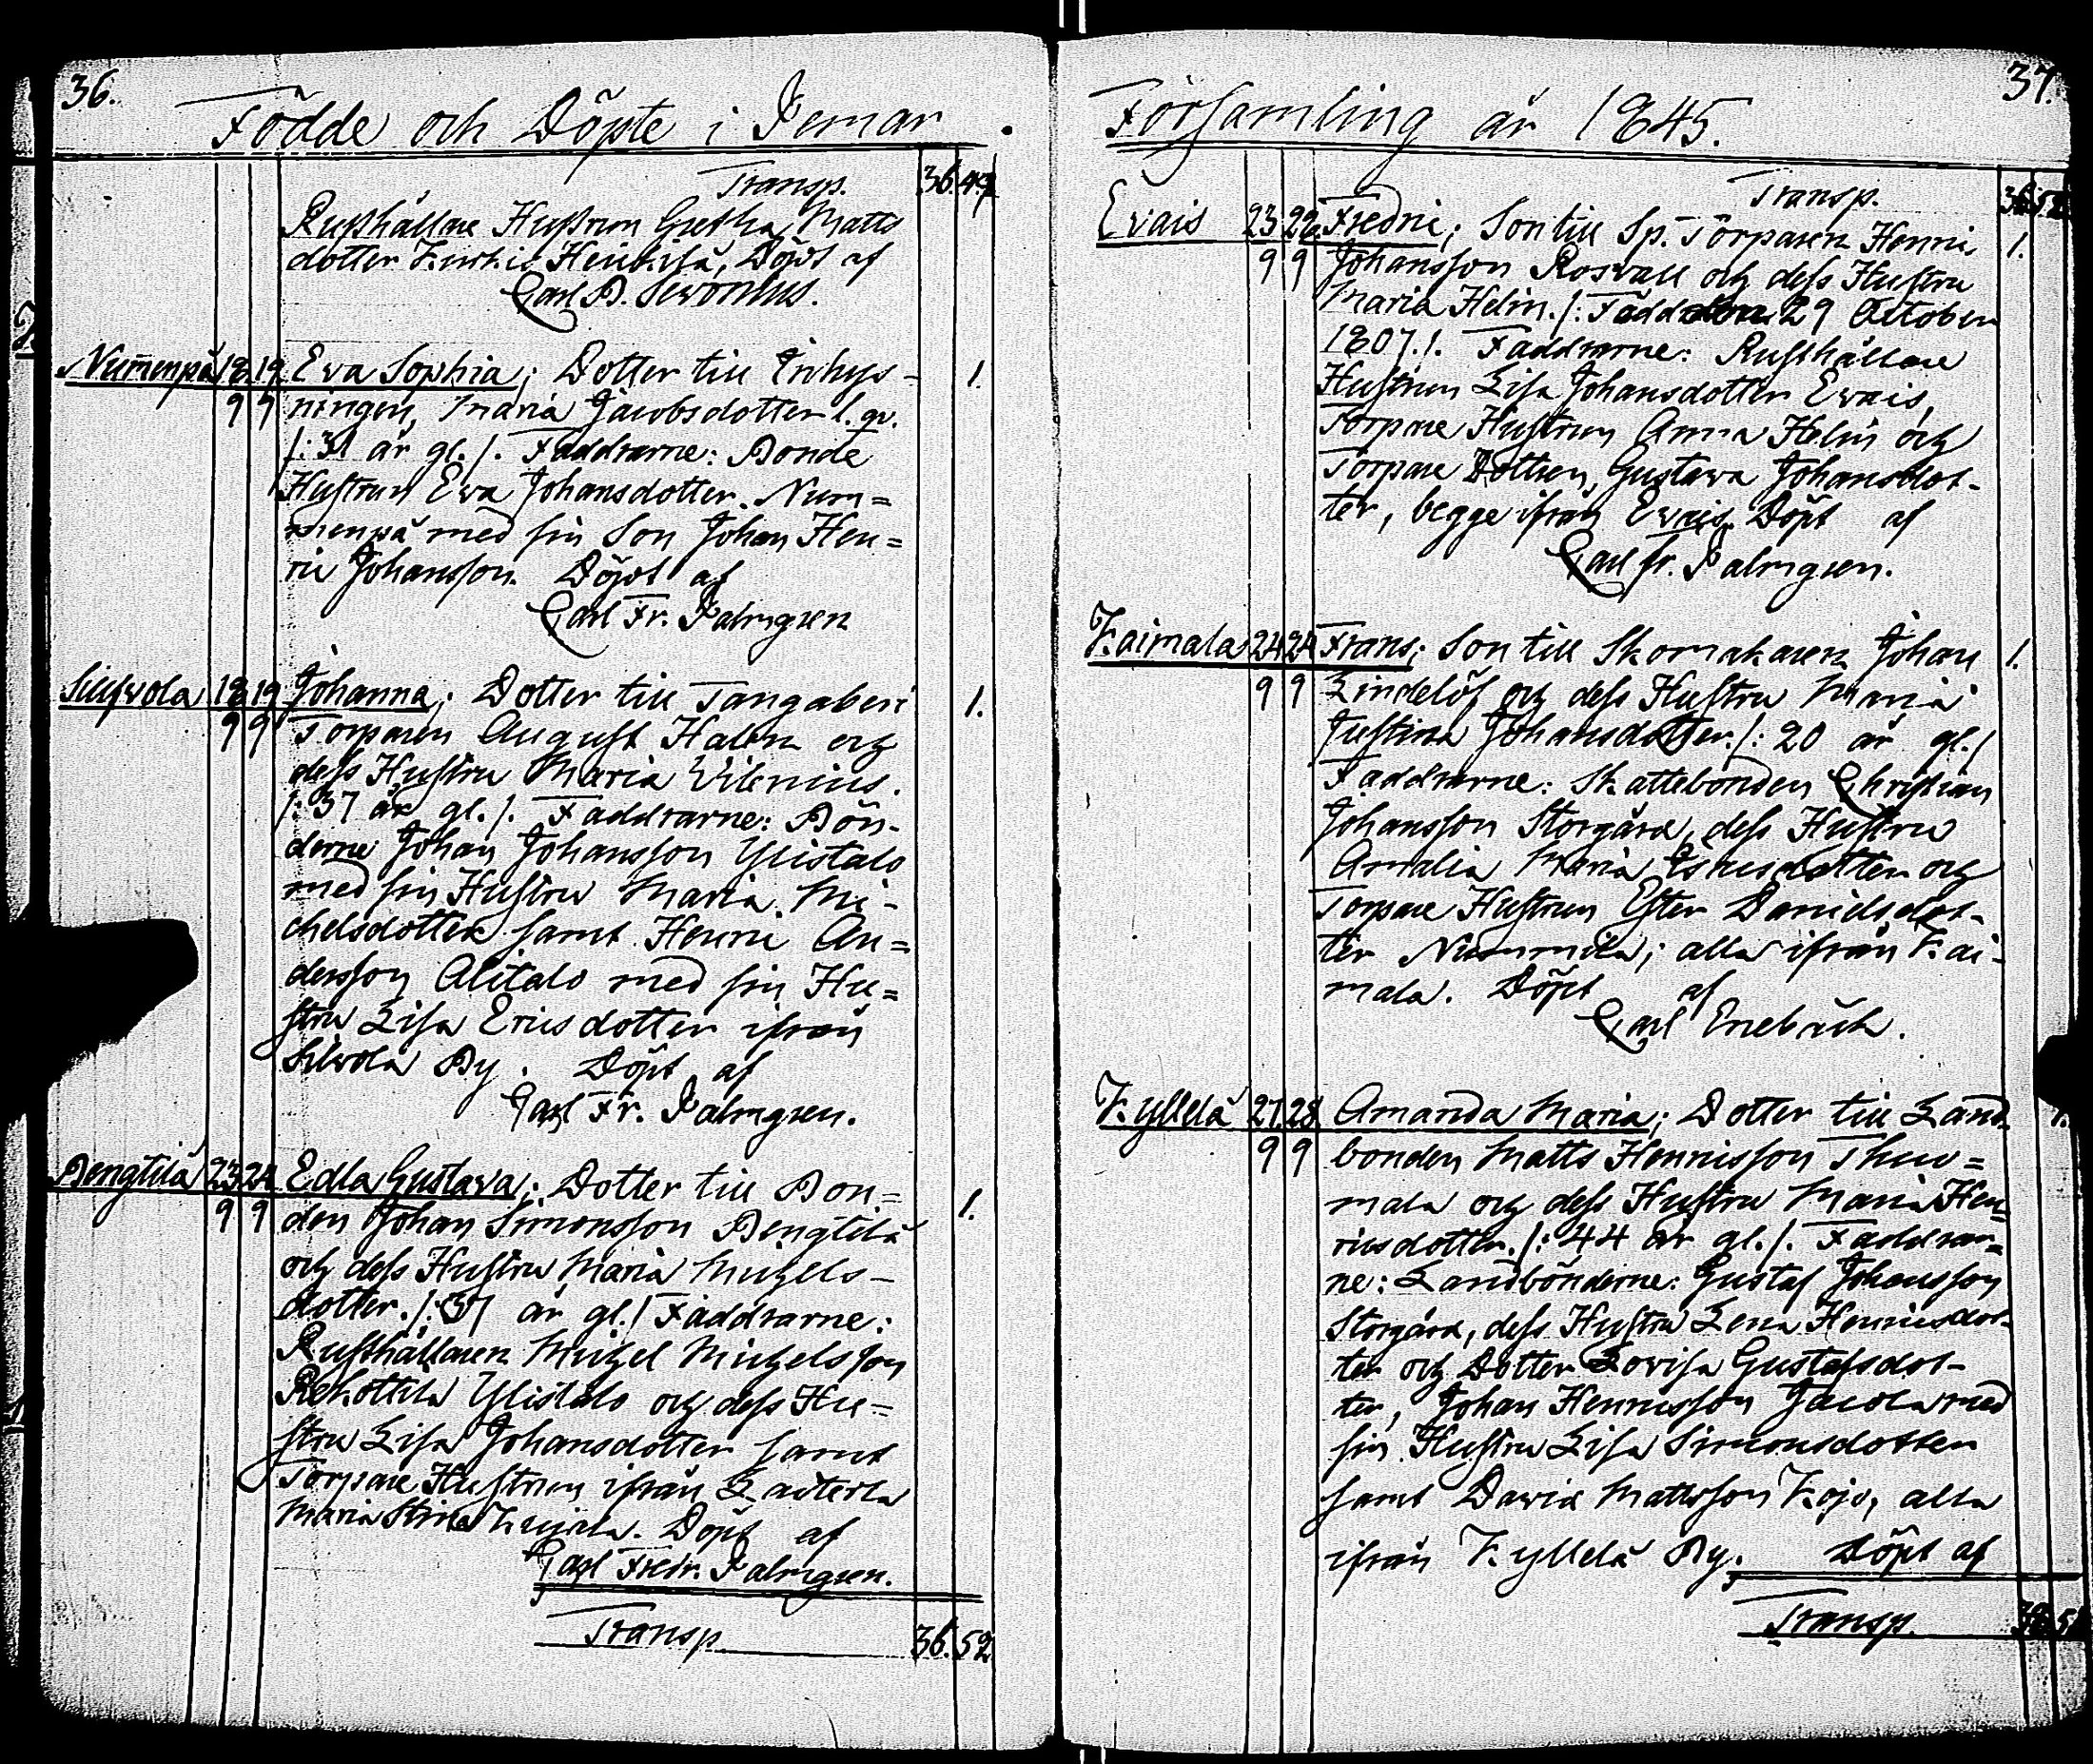 36.
Födde och Döpte i Pemar.
Transp. 36. 49
Rusthållare Hustrun Gretha Matts
dotter Heikkilä, Döpt af
Carl B.
Nummenpä 18 19 Eva Sophia; Dotter till Inhys- 1.
9 9 ningen Maria Jacobsdotter l. qv.
/: 31 år gl. /. Faddrarne: Bonde
Hustrun Eva Johansdotter Num=
menpä med sin Son Johan Hen=
ric Johansson. Döpt af
Carl Fr. Palmgren
18 19 Johanna; Dotter till Tangaberi 1.
9 9 Torparen August Halen och
dess Hustru Maria Vilenius.
/: 37 år gl. /. Faddrarne: Bön-
derne Johan Johansson Ylistalo
med sin Hustru Maria Mi-
chelsdotter samt Henric An=
dersson Alitalo med sin Hu=
stru Lisa Ericsdotter ifrån
Silvola By. Döpt af
Carl Fr. Palmgren.
Bengtilä 23 24 Edla Gustava; Dotter till Bon= 1.
9 9 den Johan Simonsson Bengtilä
och dess Hustru Maria Michels-
dotter. /: 37 år gl. / Faddrarne:
Rusthållaren Michel Michelsson
Rekottila Ylistalo och dess Hu=
stru Lisa Johansdotter samt
Torpare Hustrun ifrån
Maria Stina Döpt af
Carl Fredr. Palmgren.
Transp 36. 52
37.
Församling år 1845.
Transp. 36. 52
Evais 23 26 Fredric; Son till Sp. Torparen Henric 1.
9 9 Johansson Rosvall och dess Hustru
Maria Helin. /: Född den 29 October
1807. /. Faddrarne: Rusthållare
Hustrun Lisa Johansdotter Evais,
Torpare Hustrun Anna Helin och
Torpare Dottren, Gustava Johansdot-
ter, begge ifrån Evais. Döpt af
Carl Fr. Palmgren.
Kaimala 24 24 Frans; Son till Skomakaren Johan 1.
9 9 Lindelöf och dess Hustru Maria
Justina Johansdotter. /: 20 år gl. /
Faddrarne: Skattebonden Christian
Johansson Storgård, dess Hustru
Amalia Maria och
Torpare Hustrun Ester Danielsdot-
ter Nummila; alla ifrån Kai-
mala. Döpt af
Carl Enebäck.
Kyllelä 27. 28. Amanda Maria; Dotter till Land 1.
9 9 bonden Matts Henricsson Thuo=
mala och dess Hustru Maria Hen=
ricsdotter. /: 44 år gl. /. Faddrar=
ne: Landbönderne: Gustaf Johansson
Storgård, dess Hustru Lena Henricsdot-
ter och Dotter Lovisa Gustafsdot-
ter, Johan Henricsson Jacola med
sin Hustru Lisa Simonsdotter
samt David Mattsson Kojo, alla
ifrån Kyllelä By. Döpt af
Transp.